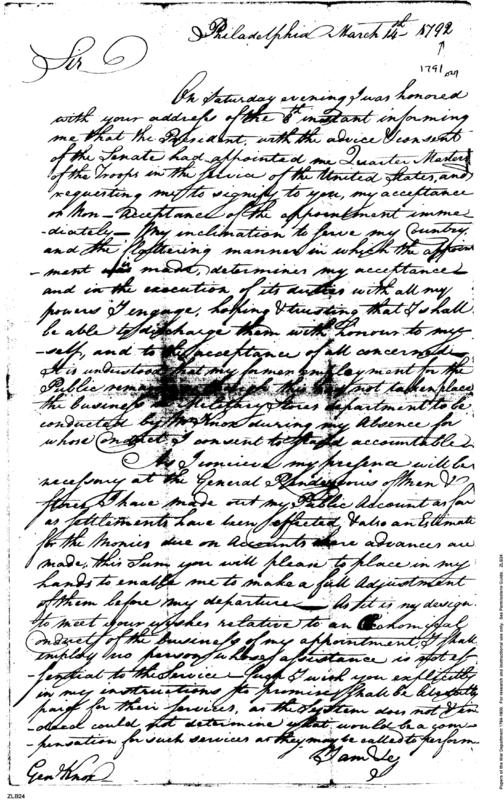 Philadelphia March 14th 1792
1791
Sir
On Saturday evening I was honored
with your address of the 8th instant informing
me that the President, with the advice & consent
of the Senate had appointed me Quarter Master
of the Troops in the Service of the United States, and
requesting me to signify to you, my acceptance
or Non-Acceptance of the appointment imme
diately — My inclination to serve my Country,
and the flattering manner in which the appoint
-ment was made, determines my acceptance
and in the execution of its duties with all my
powers I engage, hoping & trusting that I shall
be able to discharge them with honour to my
-self, and to the acceptance of all concerned
It is understood that my former employment for the
Public remains not taken place
the business Military Stores department to be
conducted by Mr Knox during my Absence for
whose Conduct I consent to stand accountable
As I conceive my presence will be
necessary at the General Rendezvous of Men &
Stores, I have made out my Public Account as far
as settlements have been effected, & also an Estimate
for the Monies due on Accounts where advances are
made, this Sum you will please to place in my
hands to enable me to make a full Adjustment
of them before my departure — As it is my design
to meet your wishes relative to an Economical
Conduct of the business of my appointment, I shall
employ no person whose assistance is not es
-sential to the Service — Such I wish you explicitly
in my instructions to promise shall be
paid for their services, as the System does not & in
-deed could not determine what would be a com
-pensation for such services as they may be called to perform
I am &c
Genl Knox
ZLB24
Papers of the War Department 1784-1800. For research and instructional use only. See Permissions Guide. ZLB24